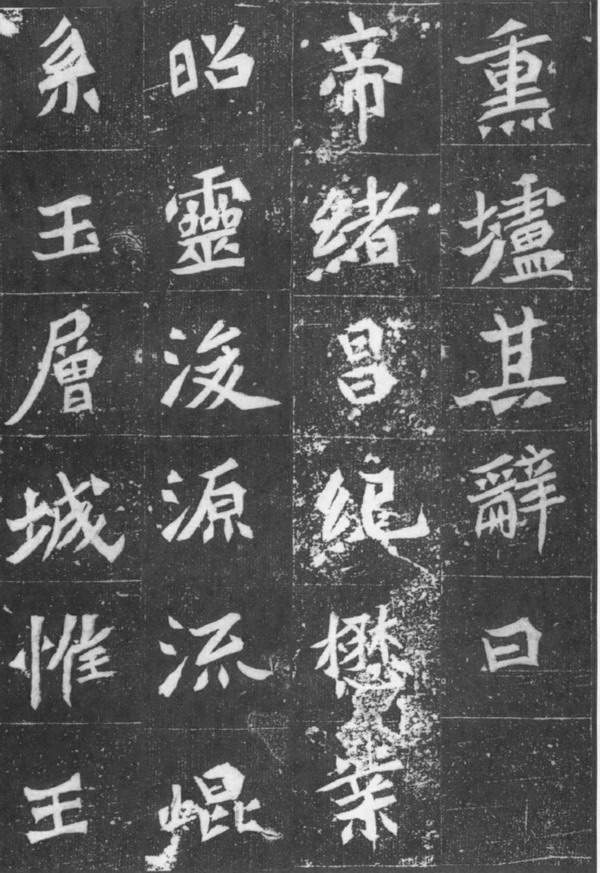 熏壚其辭曰
帝緒昌紀懋業
昭靈浚源流崐
系玉層城惟王